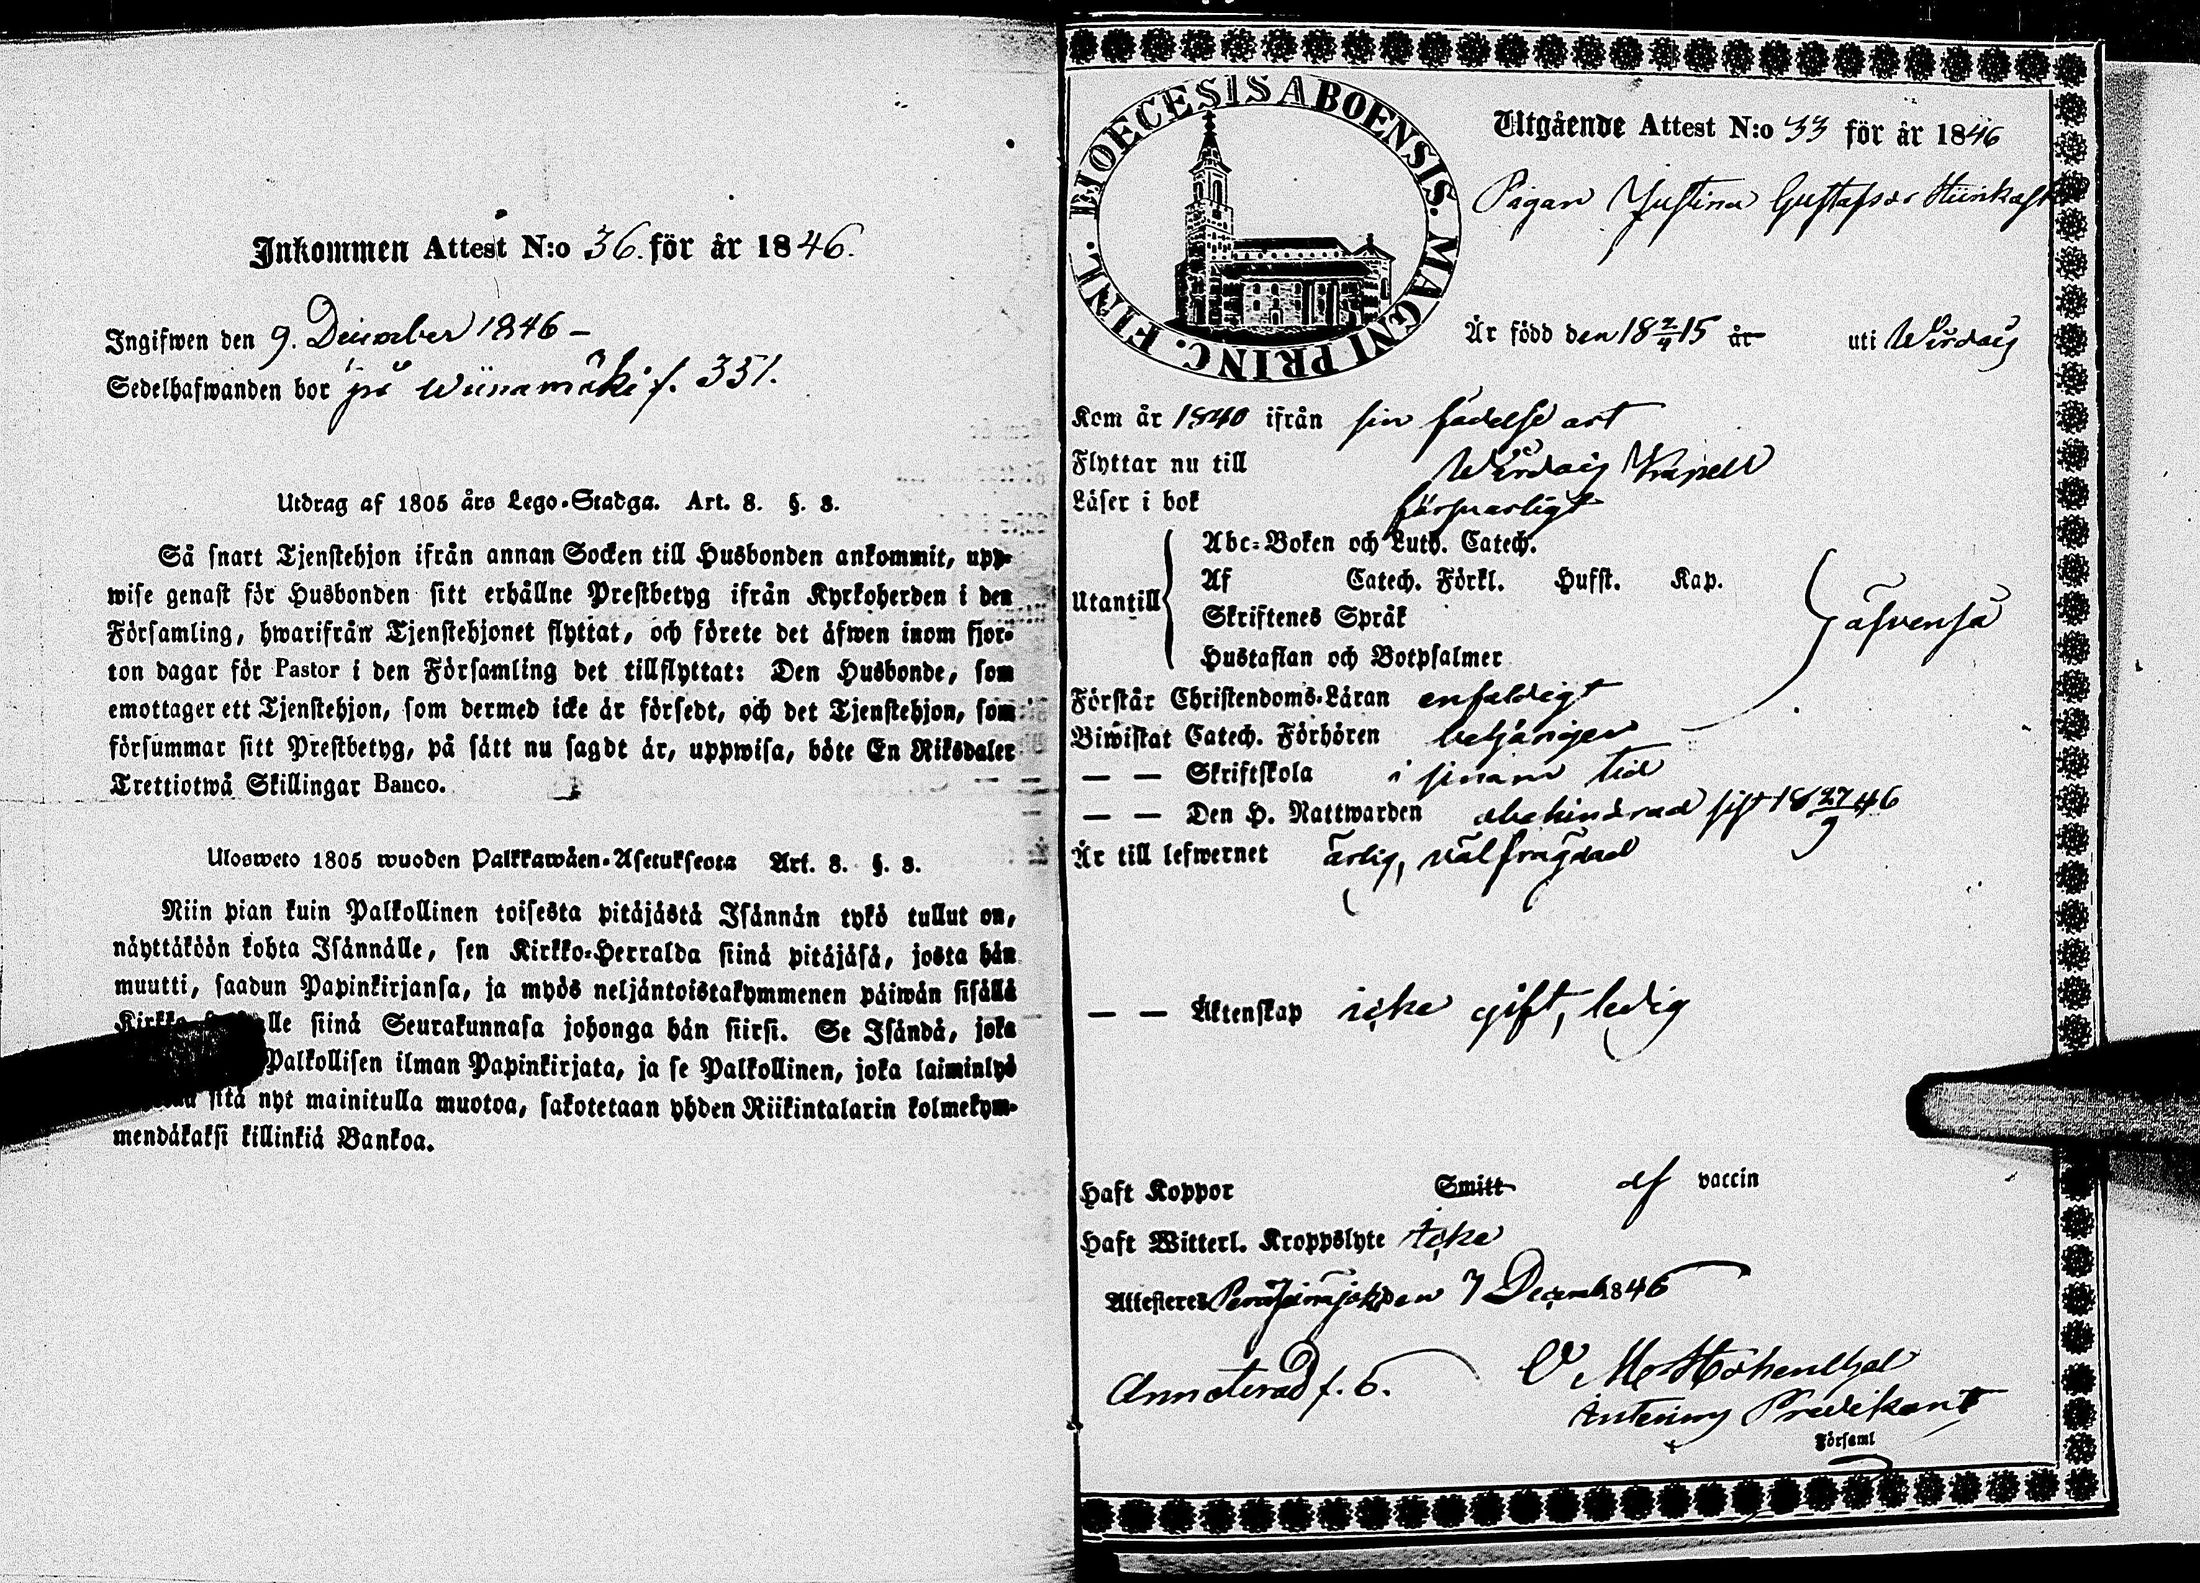 Inkommen Attest N:o 36. för år 1846.
Ingifwen den 9. December 1846 –
Sedelhafwanden bor på Wiinamäki f. 331.
Utdrag af 1805 års Lego-Stadga. Art. 8. §. 3.
Så snart Tjenstehjon ifrån annan Socken till Husbonden ankommit, upp-
wise genast för Husbonden sitt erhållne Prestbetyg ifrån Kyrkoherden i den
Församling, hwarifrån Tjenstehjonet flyttat, och förete det äfwen inom fjor-
ton dagar för Pastor i den Församling det tillflyttat: Den Husbonde, som
emottager ett Tjenstehjon, som dermed icke är försedt, och det Tjenstehjon, som
försummar sitt Prestbetyg, på sätt nu sagdt är, uppwisa, böte En Riksdaler
Trettiotwå Skillingar Banco.
Ulosweto 1805 wuoden Palkkawäen-Asetuksesta Art. 8. §. 3.
Niin pian kuin Palkollinen toisesta pitäjästä Isännän tykö tullut on,
näyttäköön kohta Isännälle, sen Kirkko-Herralda siinä pitäjäsä, josta hän
muutti, saadun Papinkirjansa, ja myös neljäntoistakymmenen päiwän sisällä
Kirkko lle siinä Seurakunnasa johonga hän siirsi. Se Isändä, joka
Palkollisen ilman Papinkirjata, ja se Palkollinen, joka laiminlyö
sitä nyt mainitulla muotoa, sakotetaan yhden Riikintalarin kolmekym-
mendäkaksi killinkiä Bankoa.
DIOECESIS ABOENSIS. MAGNI PRINC. FINL.
Utgående Attest N:o 33 för år 1846
Pigan Justina Gustafsdr
Är född den 18 2/4 15 år uti Wirdois
Kom år 1840 ifrån sin födelse ort
Flyttar nu till Wirdois Kapell
Läser i bok försvarligt
Abc-Boken och Luth. Catech.
Utantill Af Catech. Förkl. Husst. Kap.
Skriftenes Språk
Hustaflan och Botpsalmer
äfvenså
Förstår Christendoms-Läran enfaldigt
Biwistat Catech. Förhören behörigen
— — Skriftskola i sinom tid
— — Den H. Nattwarden obehindrad sist 18 27/9 46
Är till lefwernet ärlig, välfrägdad
— — Äktenskap icke gift, ledig
Haft Koppor Smitt af vaccin
Haft Witterl. Kroppslyte Icke
Attesteres Peräseinäjoki den 7 Decemb. 1846
Annoterad f. 6.
Predikant
Församl